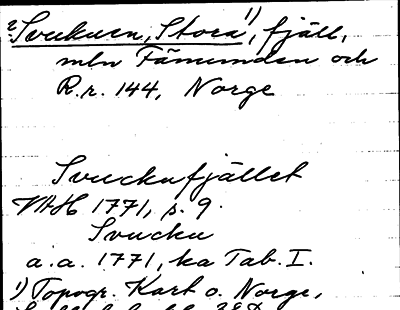 Svukuen, Stora 1), fjäll,
mln Fämunden och
R.r. 144, Norge
Svuckufjället
VAH 1771, s. 9.
Svucku
a.a. 1771, ka Tab. I.
1) Topogr. Kart o. Norge,